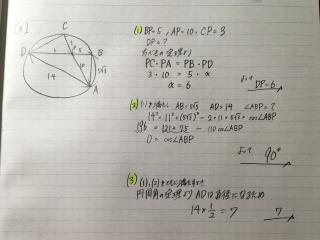 [II]
C
D
B
A
P
5
10
14
5√3
(1) BP=5, AP=10, CP=3
DP=?
方べきの定理より
PC・PA = PB・PD
3・10 = 5・x
x = 6
よって DP=6
(2) AB=5√3 AD=14 ∠ABP=?
14² = 11² + (5√3)² - 2・11・5√3・cos∠ABP
196 = 121 + 75 - 110cos∠ABP
0 = cos∠ABP
よって 90°
(3) (1), (2)
円周角の定理より ADは直径になるため
14 × 1/2 = 7
7